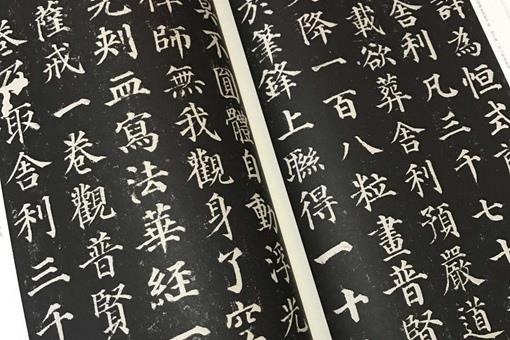 許為恒式前
舍利凡三千七十
載欲葬舍利預嚴道
降一百八粒畫普賢
於筆鋒上聯得一十
莫不圓體自動浮光
禪師無我觀身了空
先刺血寫法華經一
薩戒一卷觀普賢
卷乃取舍利三千